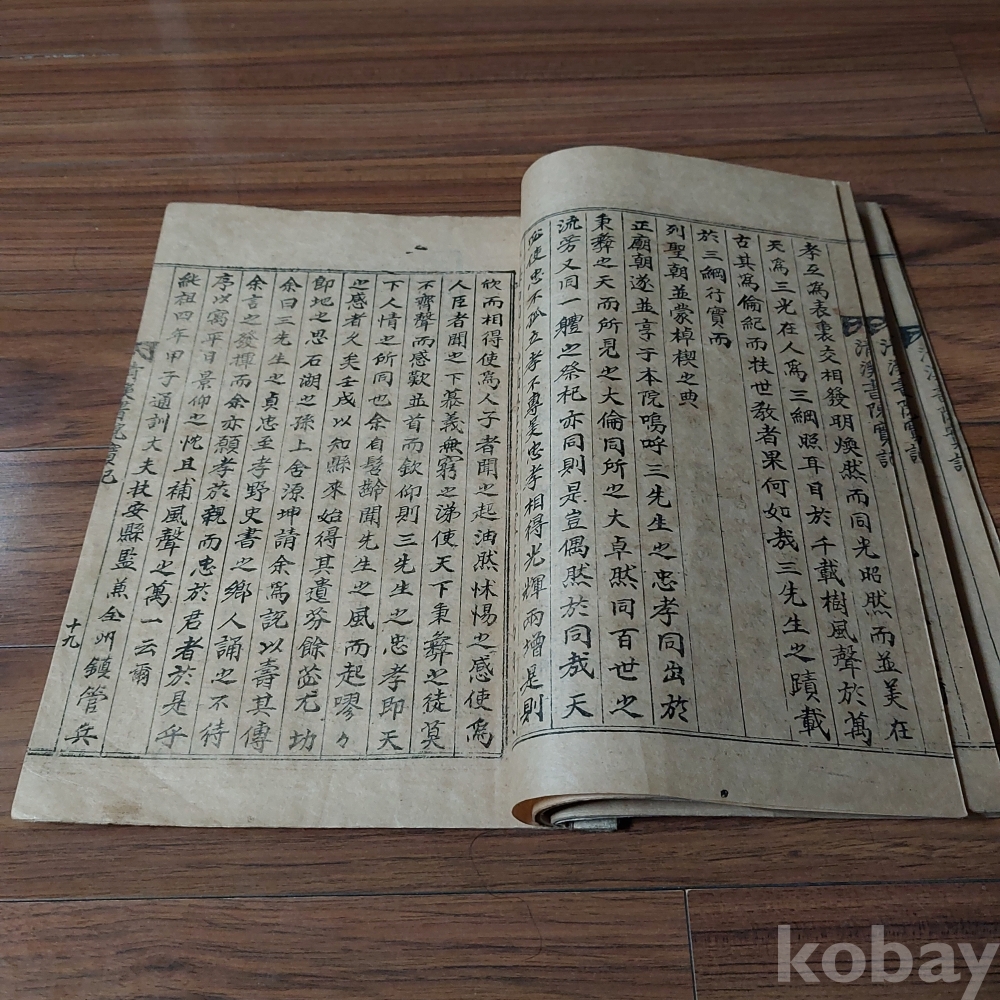 孝互爲表裏交相發明煥然而同光昭然而並美在
天爲三光在人爲三綱照耳目於千載樹風聲於萬
古其爲倫紀而扶世敎者果何如哉三先生之蹟載
於三綱行實而
列聖朝並蒙棹楔之典
正廟朝遂並享于本院嗚呼三先生之忠孝同出於
秉彝之天而所見之大倫同所之大卓然同百世之
流芳又同一軆之祭祀亦同則是豈偶然於同哉天
必使忠不孤立孝不專是忠孝相得光輝兩增是則
欣而相得使爲人子者聞之起油然怵惕之感使爲
人臣者聞之下慕義無窮之涕使天下秉彝之徒莫
不齊聲而感歎並首而欽仰則三先生之忠孝即天
下人情之所同也余自髫齡聞先生之風而起嘐々
之感者久矣壬戌以知縣來始得其遺芬餘
即地之思石湖之孫上舍源坤請余爲說以壽其傳
余曰三先生之貞忠至孝野史書之鄉人誦之不待
余言之發揮而余亦願孝於親而忠於君者於是乎
序以寓平日景仰之忱且補風聲之萬一云爾
純祖四年甲子通訓大夫扶安縣監兼全州鎭管兵
十九
書院實記
kobay